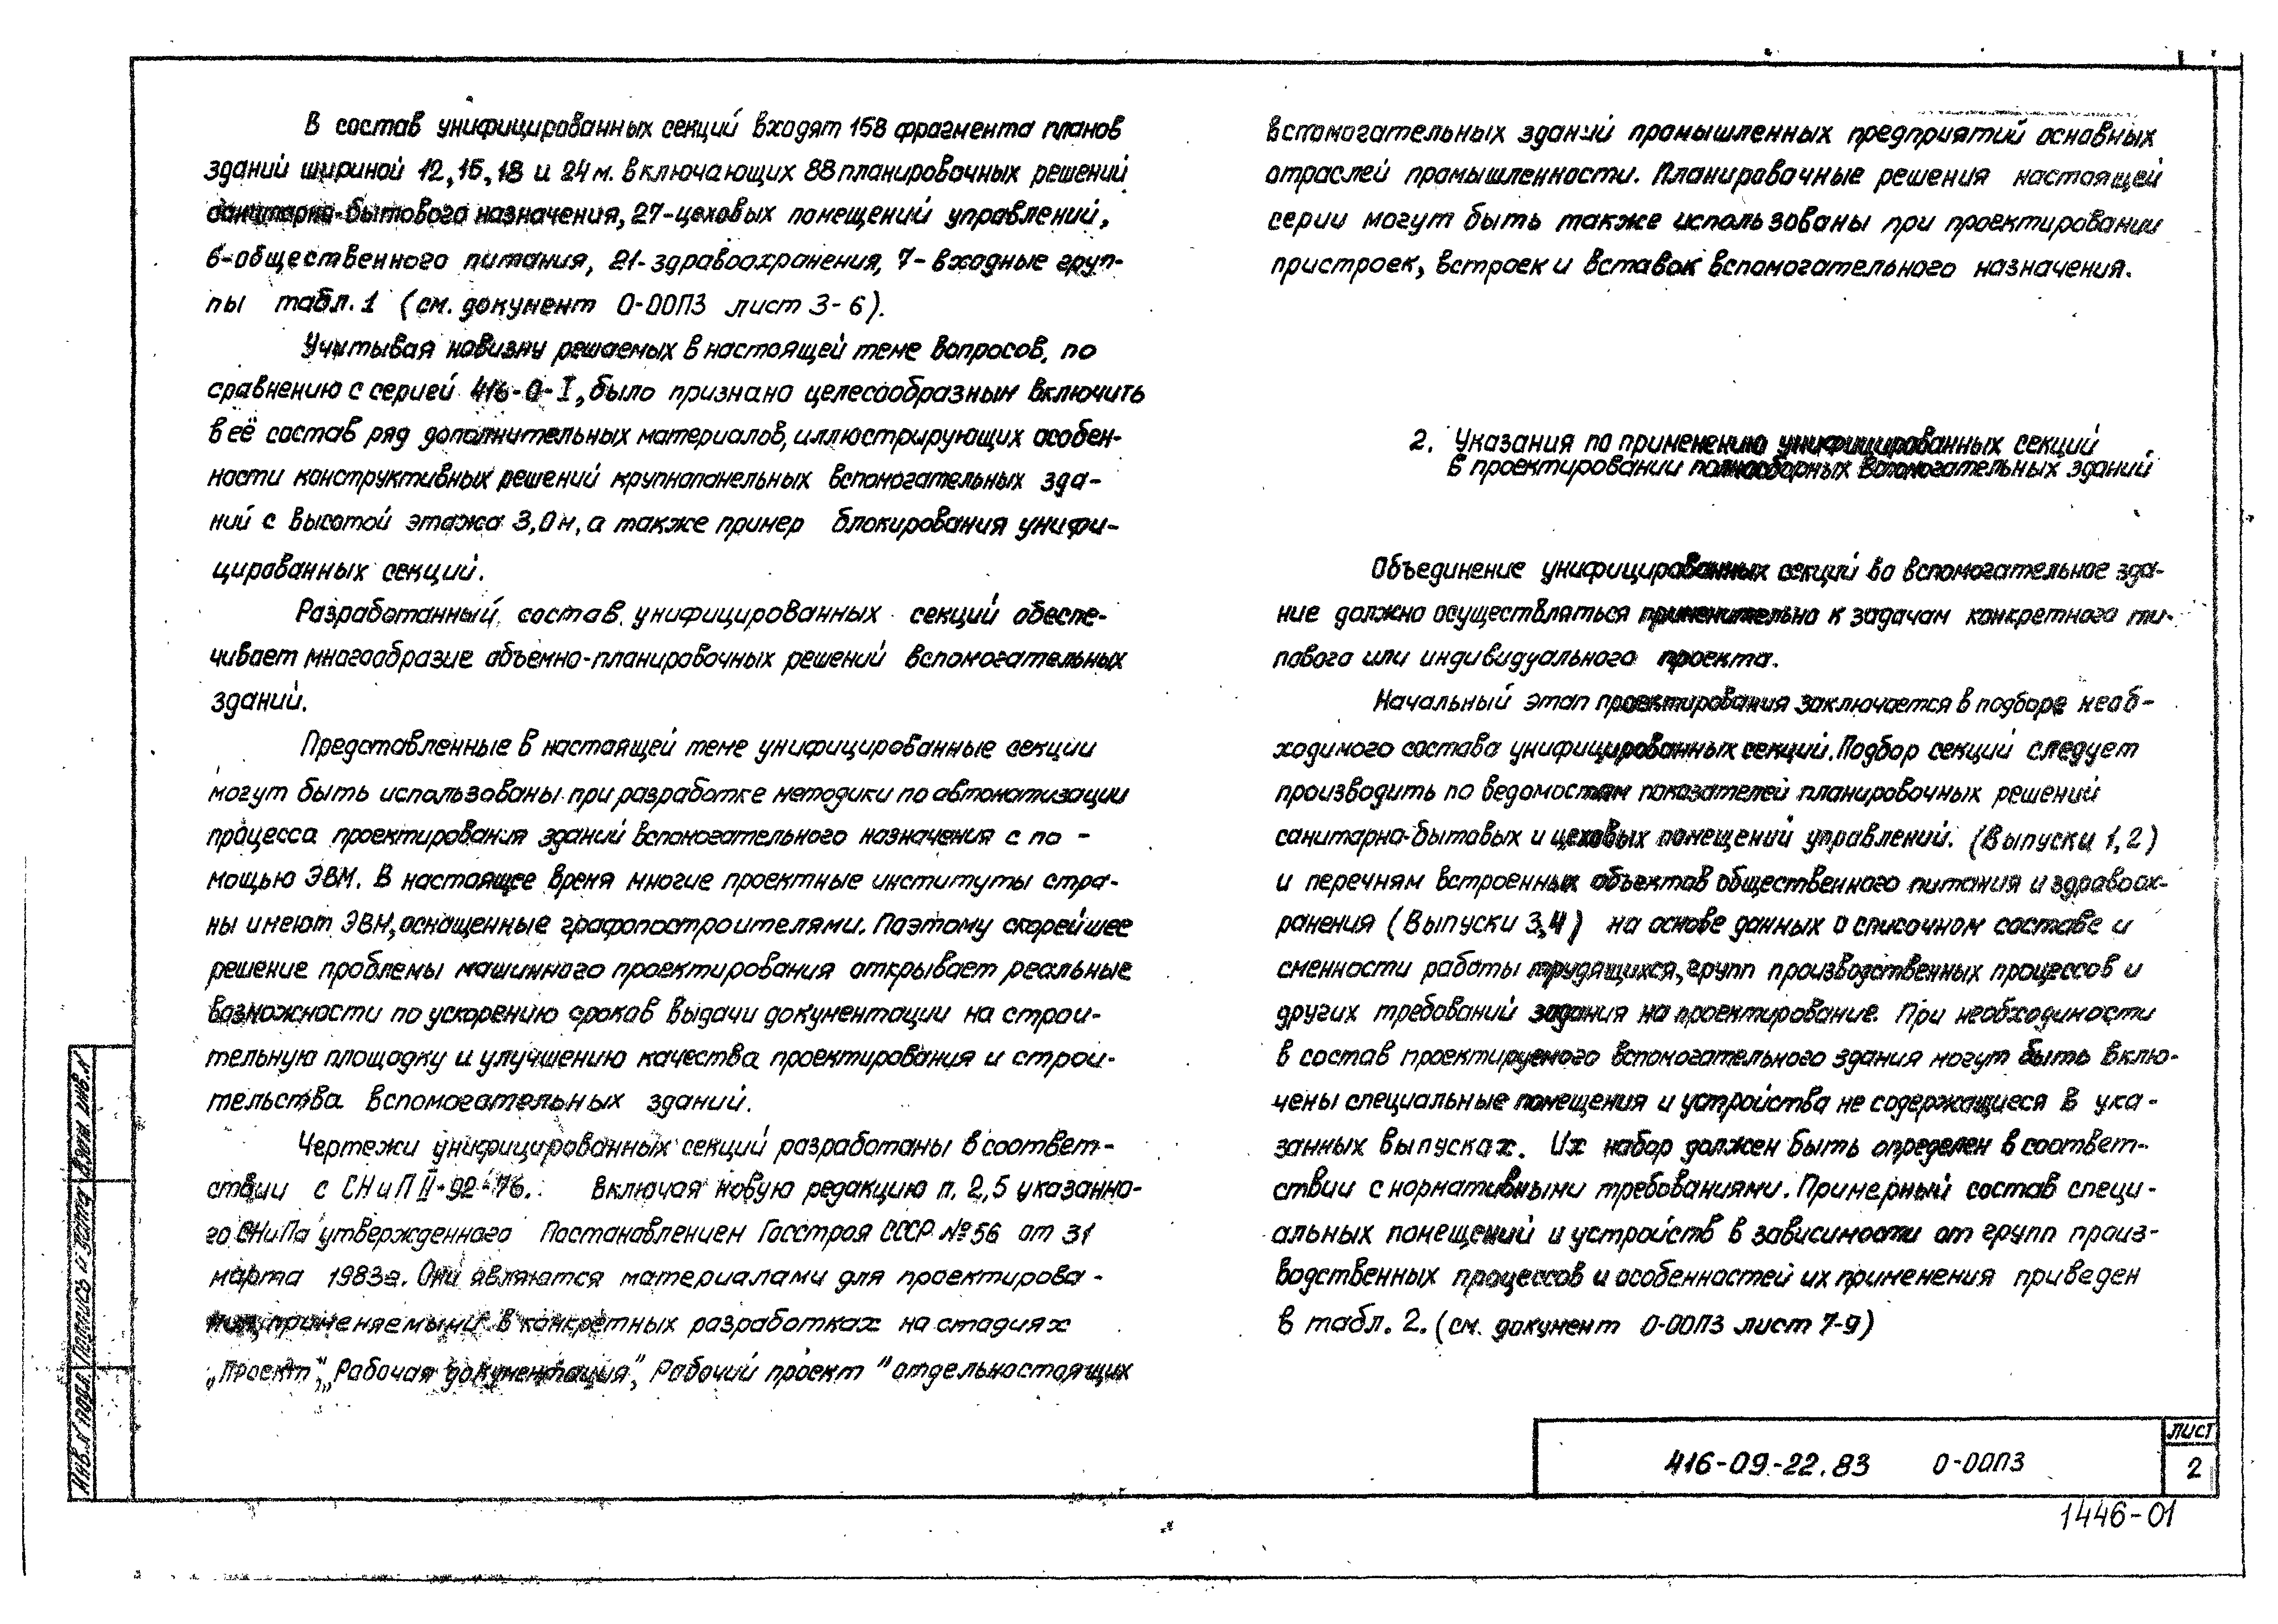 В состав унифицированных секций входят 158 фрагмента планов
зданий шириной 12, 15, 18 и 24 м. включающих 88 планировочных решений
санитарно-бытового назначения, 27-цеховых помещений управлений,
6-общественного питания, 21-здравоохранения, 7-входные груп-
пы табл. 1 (см. документ 0-00ПЗ лист 3-6).
Учитывая новизну решаемых в настоящей теме вопросов, по
сравнению с серией 416-0-I, было признано целесообразным включить
в её состав ряд дополнительных материалов, иллюстрирующих особен-
ности конструктивных решений крупнопанельных вспомогательных зда-
ний с высотой этажа 3,0 м, а также пример блокирования унифи-
цированных секций.
Разработанный состав унифицированных секций обеспе-
чивает многообразие объемно-планировочных решений вспомогательных
зданий.
Представленные в настоящей теме унифицированные секции
могут быть использованы при разработке методики по автоматизации
процесса проектирования зданий вспомогательного назначения с по-
мощью ЭВМ. В настоящее время многие проектные институты стра-
ны имеют ЭВМ, оснащенные графопостроителями. Поэтому скорейшее
решение проблемы машинного проектирования открывает реальные
возможности по ускорению сроков выдачи документации на строи-
тельную площадку и улучшению качества проектирования и строи-
тельства вспомогательных зданий.
Чертежи унифицированных секций разработаны в соответ-
ствии с СНиП II-92-76. включая новую редакцию п. 2,5 указанно-
го СНиПа утвержденного Постановлением Госстроя СССР №56 от 31
марта 1983г. Они являются материалами для проектирова-
ния, применяемыми в конкретных разработках на стадиях
„Проект", „Рабочая документация", Рабочий проект" отдельностоящих
вспомогательных зданий промышленных предприятий основных
отраслей промышленности. Планировочные решения настоящей
серии могут быть также использованы при проектировании
пристроек, встроек и вставок вспомогательного назначения.
2. Указания по применению унифицированных секций
в проектировании полносборных вспомогательных зданий
Объединение унифицированных секций во вспомогательное зда-
ние должно осуществляться применительно к задачам конкретного ти-
пового или индивидуального проекта.
Начальный этап проектирования заключается в подборе необ-
ходимого состава унифицированных секций. Подбор секций следует
производить по ведомостям показателей планировочных решений
санитарно-бытовых и цеховых помещений управлений. (Выпуски 1,2)
и перечням встроенных объектов общественного питания и здравоох-
ранения (Выпуски 3,4) на основе данных о списочном составе и
сменности работы трудящихся, групп производственных процессов и
других требований задания на проектирование. При необходимости
в состав проектируемого вспомогательного здания могут быть вклю-
чены специальные помещения и устройства не содержащиеся в ука-
занных выпусках. Их набор должен быть определен в соответ-
ствии с нормативными требованиями. Примерный состав специ-
альных помещений и устройств в зависимости от групп произ-
водственных процессов и особенностей их применения приведен
в табл. 2. (см. документ 0-00ПЗ лист 7-9)
Инв.№ подл. Подпись и дата Взам. инв.№
416-09-22.83 0-00ПЗ
лист
2
1446-01